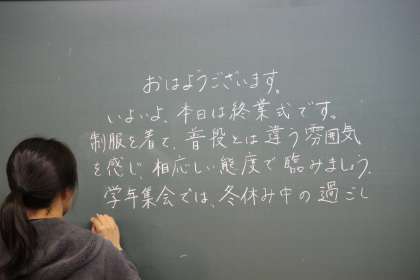 おはようございます。
いよいよ、本日は終業式です。
制服を着て、普段とは違う雰囲気
を感じ、相応しい態度で臨みましょう。
学年集会では、冬休み中の過ごし